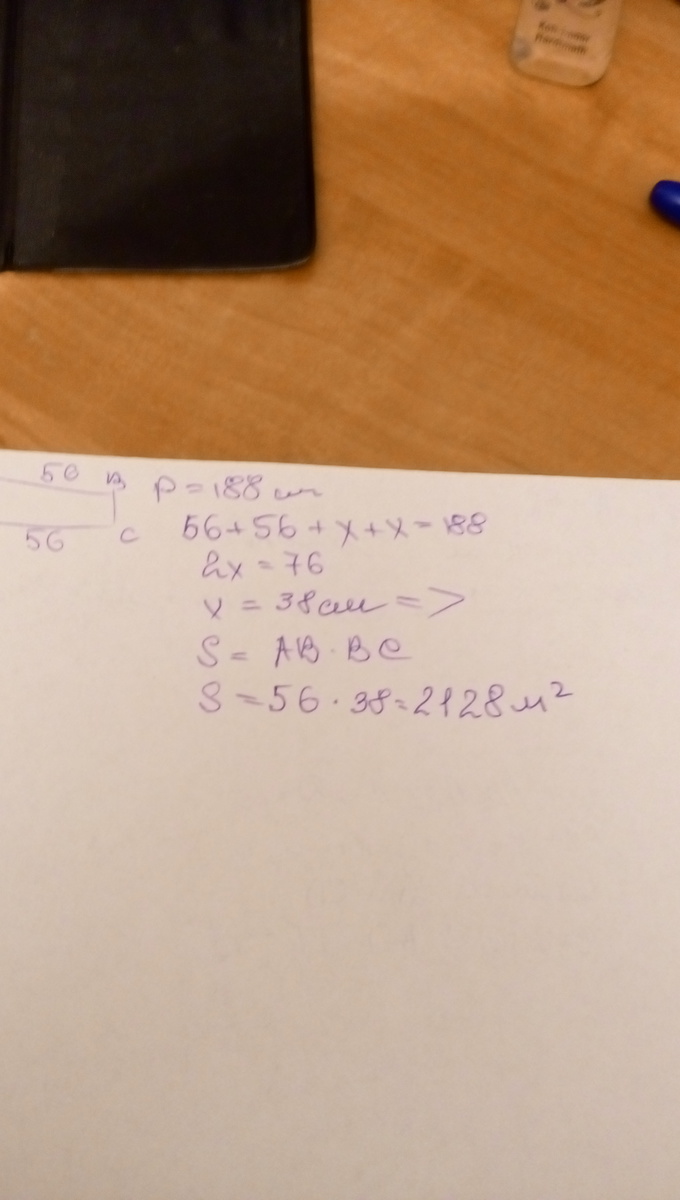 56 B P = 188 см
56 C 56 + 56 + x + x = 188
2x = 76
x = 38см =>
S = AB · BC
S = 56 · 38 = 2128 м²